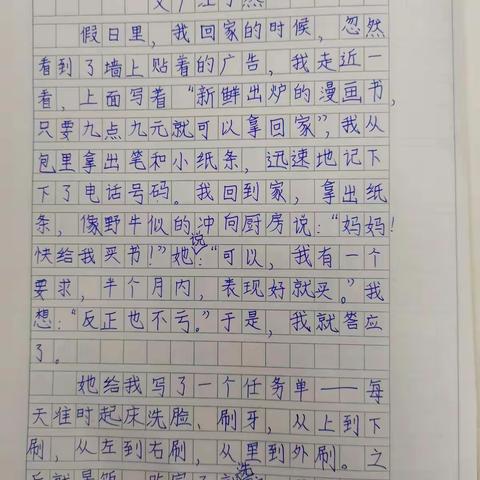 假日里，我回家的时候，忽然
看到了墙上贴着的广告，我走近一
看，上面写着“新鲜出炉的漫画书，
只要九点九元就可以拿回家”，我从
包里拿出笔和小纸条，迅速地记下
下了电话号码。我回到家，拿出纸
条，像野牛似的冲向厨房说：“妈妈！
快给我买书！”她说：“可以，我有一个
要求，半个月内，表现好就买。”我
想：“反正也不亏。”于是，我就答应
了。
她给我写了一个任务单——每
天准时起床洗脸、刷牙，从上到下
刷，从左到右刷，从里到外刷。之